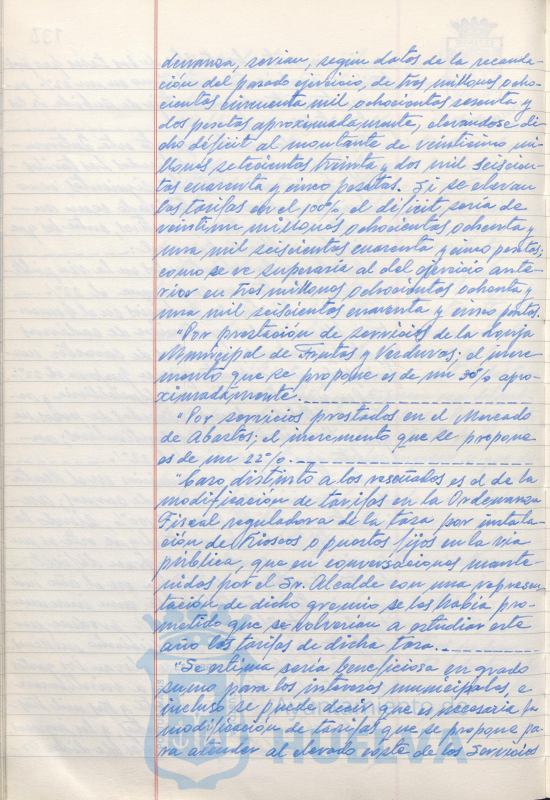 denanza, serian, según datos de la recauda-
ción del pasado ejercicio, de tres millones ocho-
cientas cincuenta mil ochocientas sesenta y
dos pesetas aproximadamente, elevandose di
cho déficit al montante de veinticinco mi-
llones setecientas treinta y dos mil seiscien-
tas cuarenta y cinco pesetas. Si se elevan
las tarifas en el 100% el déficit sería de
veintiun millones ochocientas ochenta y
una mil seiscientas cuarenta y cinco pesetas;
como se ve superaría al del ejercicio ante-
rior en tres millones ochocientas ochenta y
una mil seiscientas cuarenta y cinco ptas.
"Por prestación de servicios de la Lonja
Municipal de Frutas y Verduras; el incre-
mento que se propone es de un 30% apro-
ximadamente.
"Por servicios prestados en el Mercado
de Abastos; el incremento que se propone
es de un 22%.
"Caso distinto a los reseñados es el de la
modificación de tarifas en la Ordenanza
Fiscal reguladora de la tasa por instala-
ción de Kioscos o puestos fijos en la via
pública, que en conversaciones mante-
nidas por el Sr. Alcalde con una represen
tación de dicho gremio se les habia pro-
metido que se volverian a estudiar este
año las tarifas de dicha tasa.
"Se estima sería beneficiosa en grado
sumo para los intereses municipales, e
incluso se puede decir que es necesaria la
modificación de tarifas que se propone pa-
ra atender al elevado coste de los Servicios
HUELVA